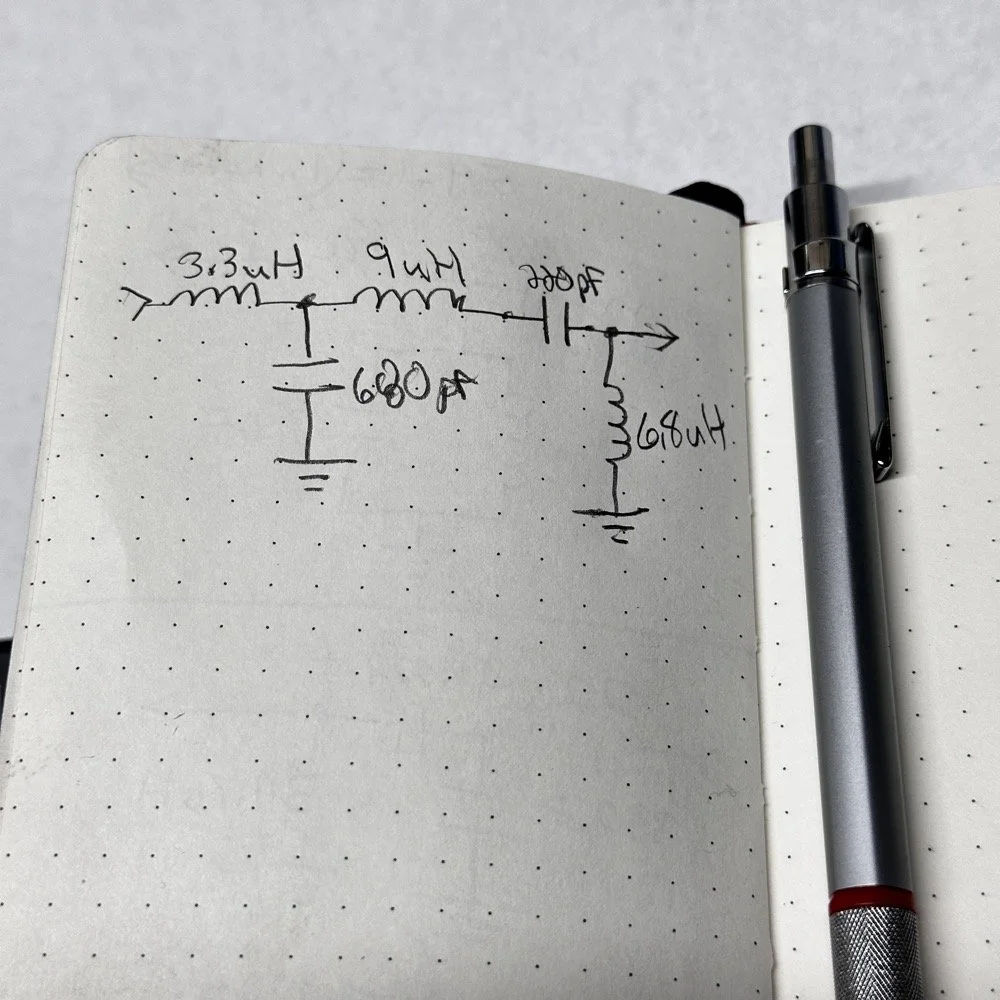 3.3uH 9uH 220pF
680pF
6.8uH